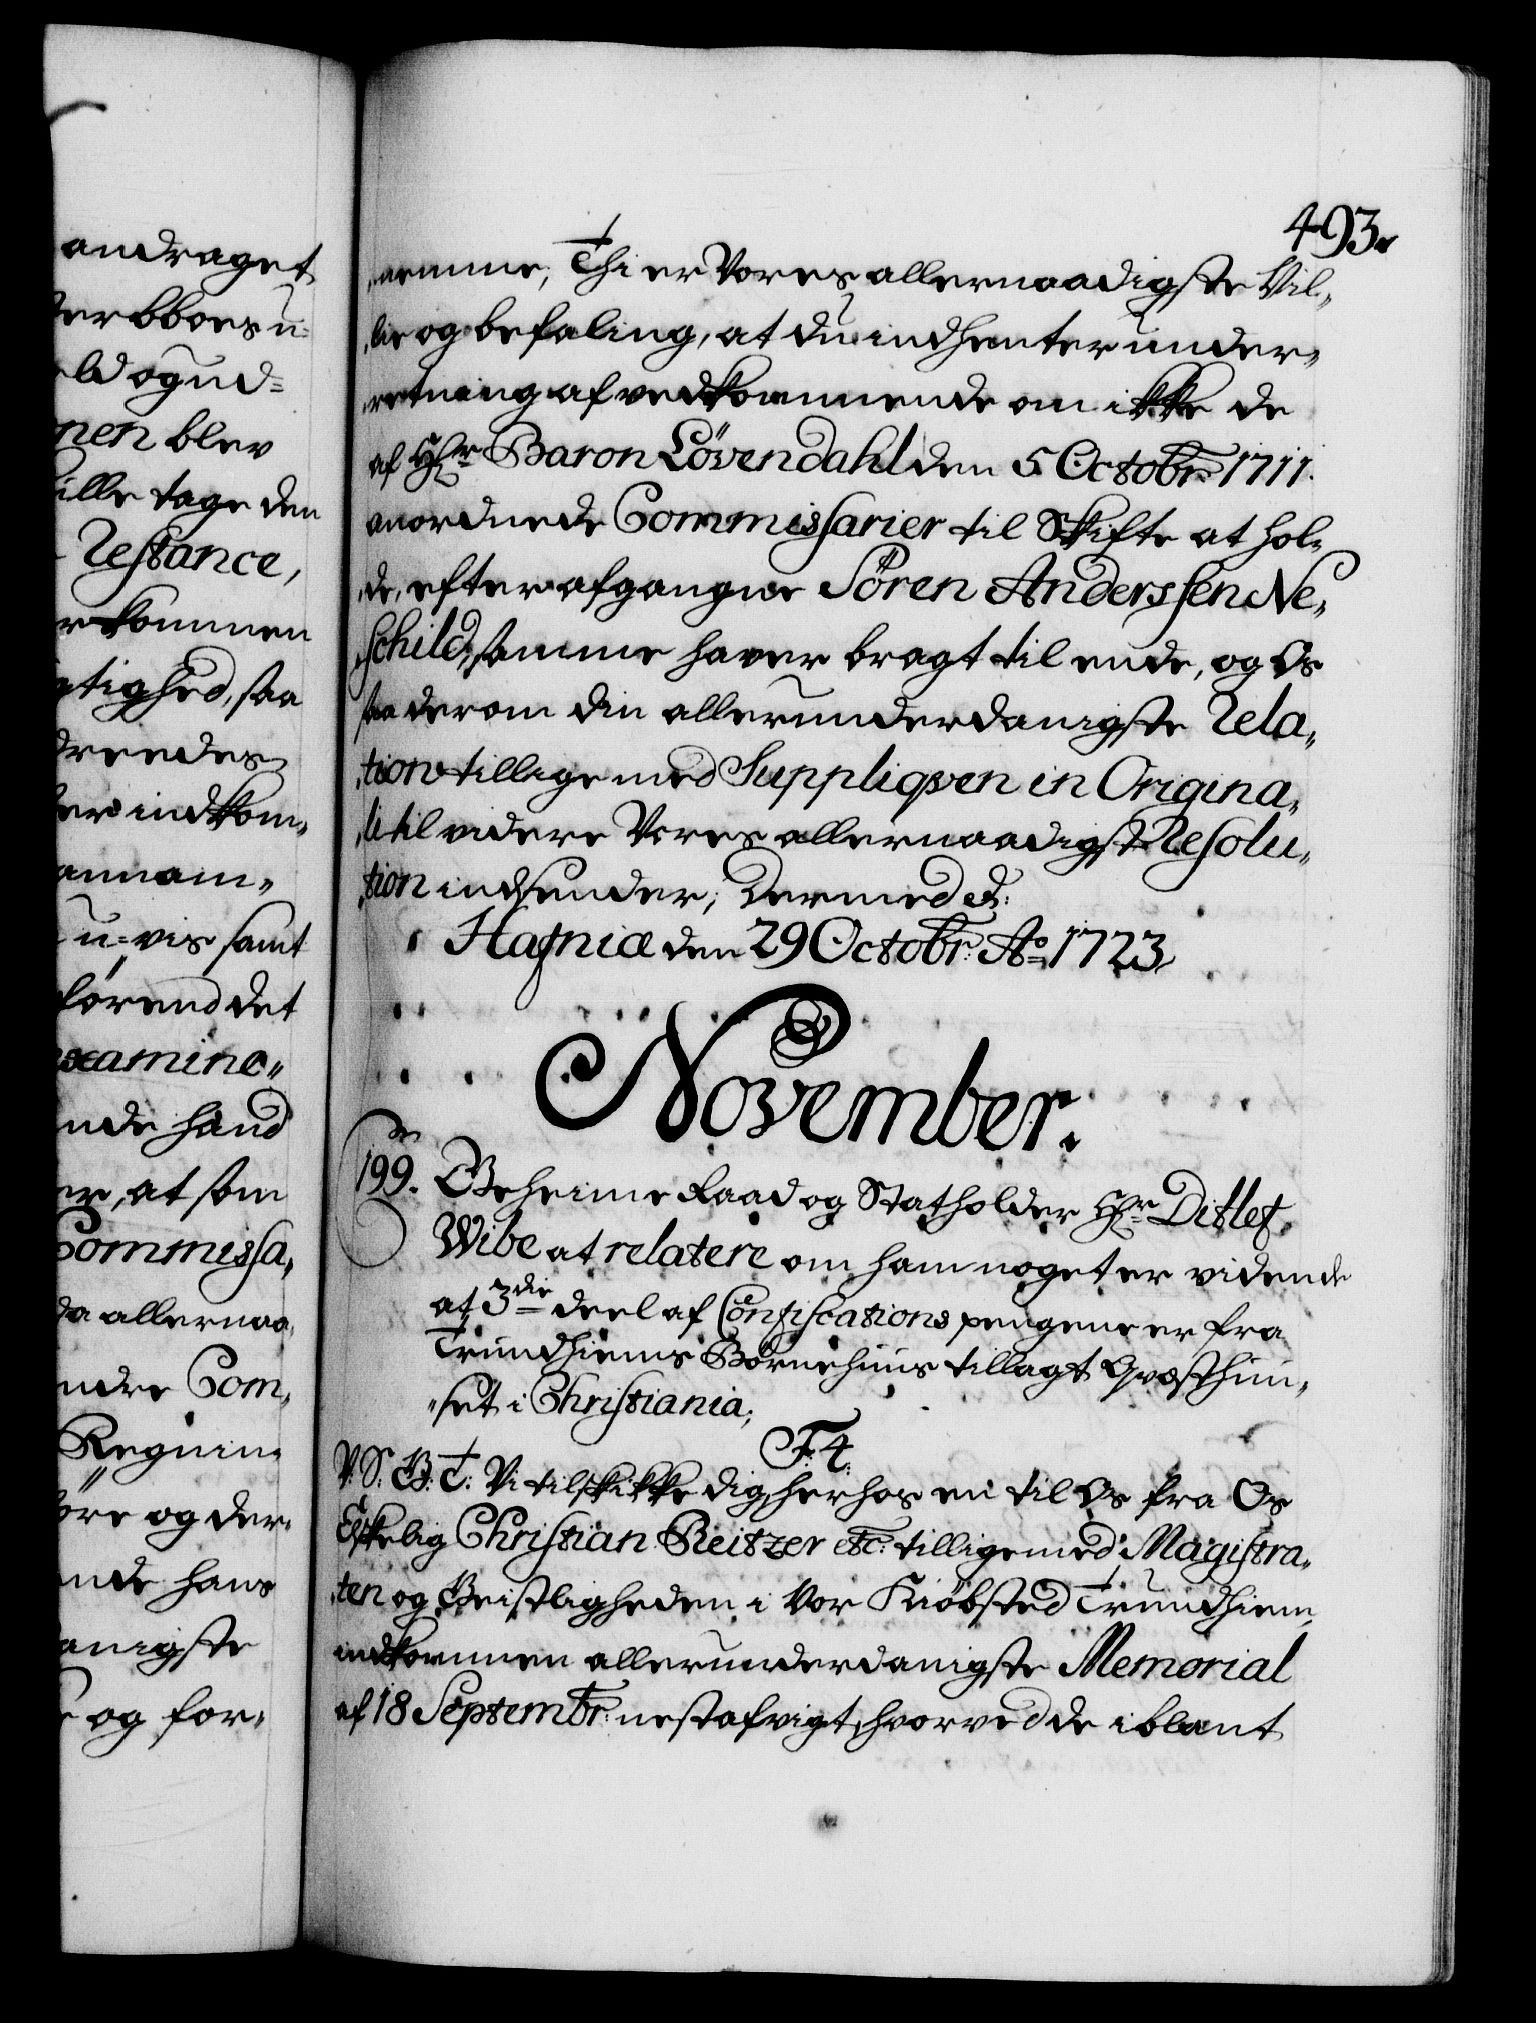 andraget
erbboes u-
ld og ud-
nen blev
ille tage den
Restance,
kommen
gtighed, saa
dreedes
indkom-
annam-
u-vis samt
förend det
examine-
nde haand
er, at som
Commissa-
da allernaa-
ndre Com-
Regnin-
øre og der-
nde hans
anigste
og for-
493.
nemme, Thi er Vores allernaadigste Vil-
lie og befaling, at du indhenter under-
retning af vedkommende om ikke de
af Hr. Baron Lövendahl den 5 Octobr: 1711.
anordnede Commissarier til Skifte at hol-
de, efter afgangne Sören Anderssen Ne-
schild, samme haver bragt til ende, og Os
saa derom din allerunderdanigste Rela-
tion tillige med Suppliqven in Origina-
li til videre Vores allernaadigst Resolu-
tion indsender; Dermed &:
Hafniæ den 29 Octobr: Ao 1723
November.
199. Geheime Raad og Statholder Hr Ditlef
Wibe at relatere om ham noget er vidende
at 3die deel af Confiscations pengene er fra
Trundhiems Börnehuus tillagt Qvæsthuu-
set i Christiania;
F. 4.
V: S: G: T: Vi tilskikke dig herhos en til Os fra Os
Elskelig Christian Reitzer etc: tilligemed Magistra-
ten og Geistligheden i Vor Kiöbsted Trundhiem
indkommen allerunderdanigste Memorial
af 18 Septembr: nestafvigt, hvorved de iblant